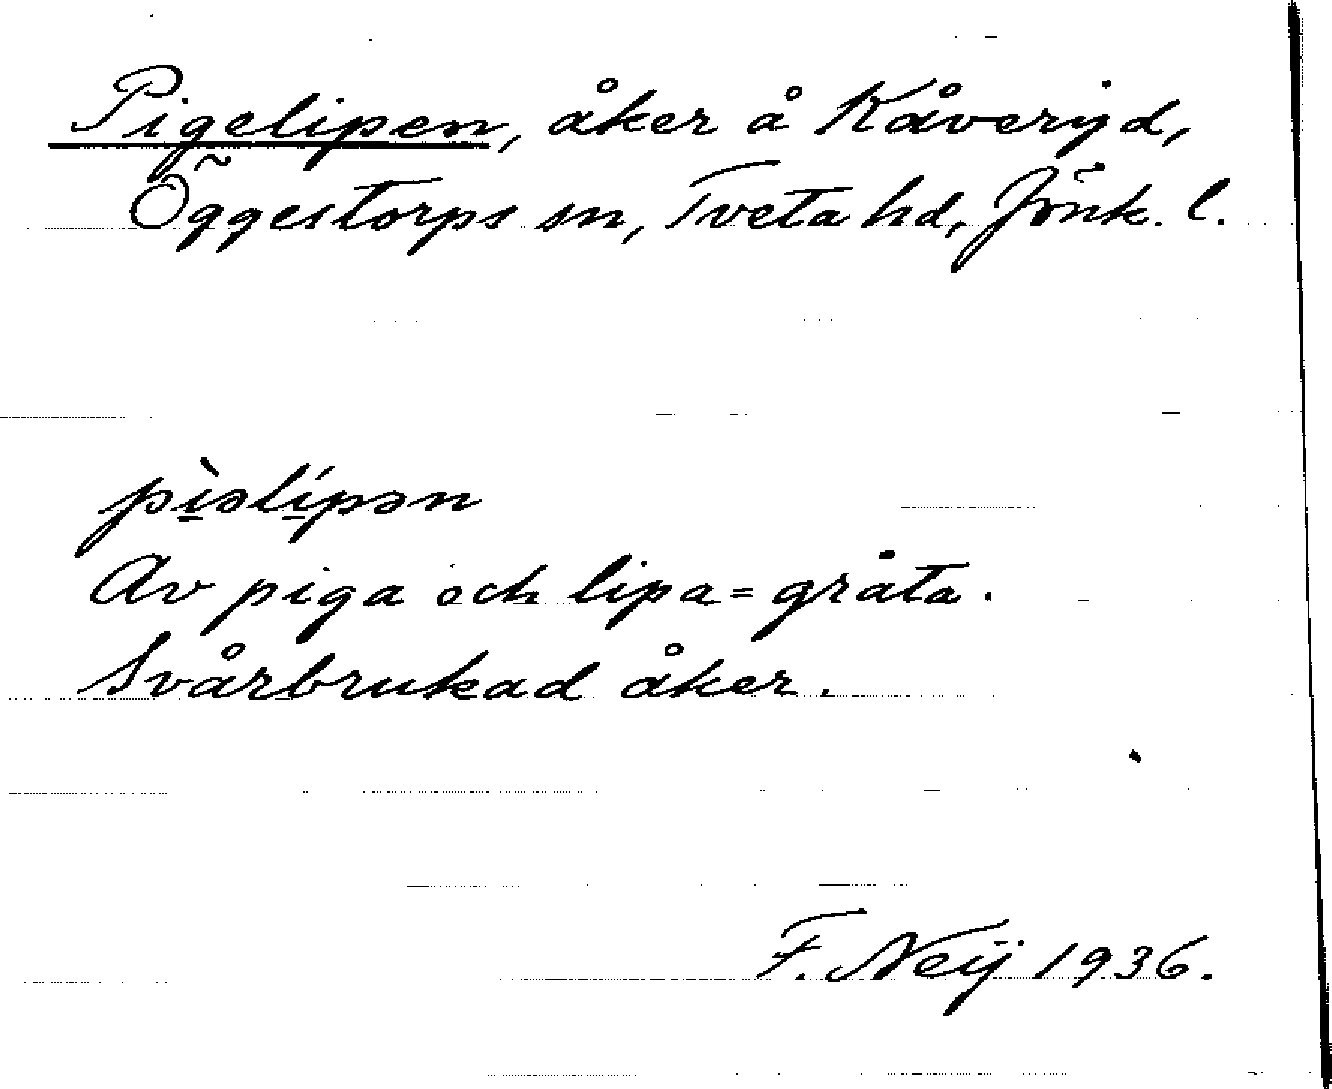 Pigelipen, åker å Kåveryd,
Öggestorps sn, Tveta hd, Jönk. l.
pìəlípən
Av piga och lipa = gråta.
Svårbrukad åker.
F. Neij 1936.